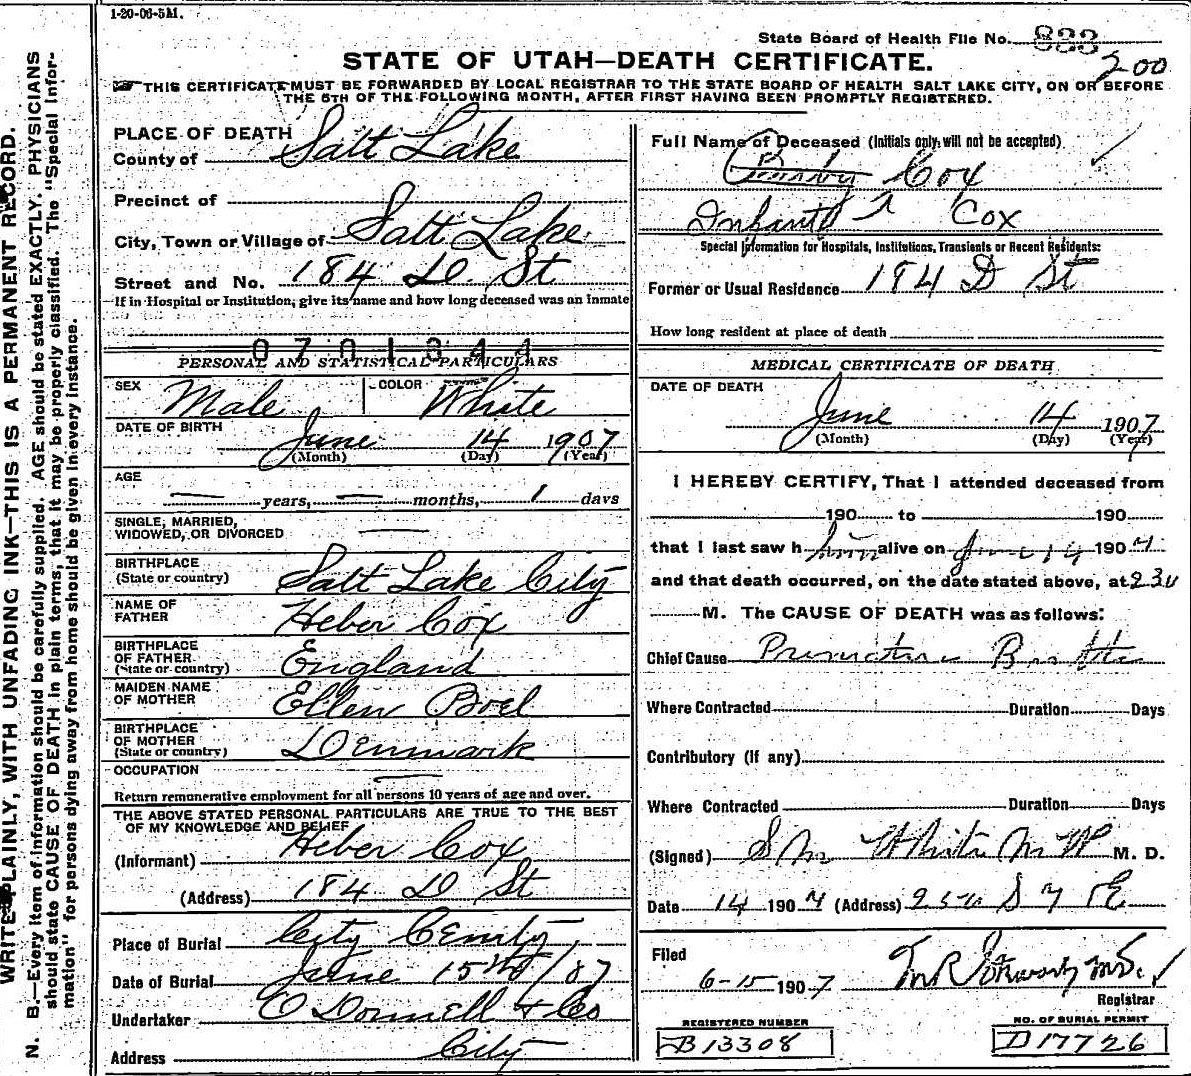 1-20-06-5M.
State Board of Health File No. 833
STATE OF UTAH—DEATH CERTIFICATE. 200
THIS CERTIFICATE MUST BE FORWARDED BY LOCAL REGISTRAR TO THE STATE BOARD OF HEALTH SALT LAKE CITY, ON OR BEFORE
THE 5TH OF THE FOLLOWING MONTH, AFTER FIRST HAVING BEEN PROMPTLY REGISTERED.
WRITE PLAINLY, WITH UNFADING INK—THIS IS A PERMANENT RECORD.
N. B.—Every item of information should be carefully supplied. AGE should be stated EXACTLY. PHYSICIANS
should state CAUSE OF DEATH in plain terms, that it may be properly classified. The "Special Infor-
mation" for persons dying away from home should be given in every instance.
PLACE OF DEATH
County of Salt Lake
Precinct of
City, Town or Village of Salt Lake
Street and No. 184 D. St
If in Hospital or Institution, give its name and how long deceased was an inmate
0701844
PERSONAL AND STATISTICAL PARTICULARS
SEX Male COLOR White
DATE OF BIRTH June 14 1907
(Month) (Day) (Year)
AGE
— years, — months, 1 days
SINGLE, MARRIED,
WIDOWED, OR DIVORCED —
BIRTHPLACE
(State or country) Salt Lake City
NAME OF
FATHER Heber Cox
BIRTHPLACE
OF FATHER
(State or country) England
MAIDEN NAME
OF MOTHER Ellen Boel
BIRTHPLACE
OF MOTHER
(State or country) Denmark
OCCUPATION —
Return remunerative employment for all persons 10 years of age and over.
THE ABOVE STATED PERSONAL PARTICULARS ARE TRUE TO THE BEST
OF MY KNOWLEDGE AND BELIEF
(Informant) Heber Cox
(Address) 184 D St
Place of Burial City Cemty
Date of Burial June 15th/07
Undertaker O Donnell & Co
Address City
Full Name of Deceased (Initials only will not be accepted)
Cox
Infant Cox
Special Information for Hospitals, Institutions, Transients or Recent Residents:
Former or Usual Residence 184 D St
How long resident at place of death
MEDICAL CERTIFICATE OF DEATH
DATE OF DEATH
June 14 1907
(Month) (Day) (Year)
I HEREBY CERTIFY, That I attended deceased from
190 to 190
that I last saw h him alive on June 14 1907
and that death occurred, on the date stated above, at 230
M. The CAUSE OF DEATH was as follows:
Chief Cause Premature Birth
Where Contracted Duration Days
Contributory (if any)
Where Contracted Duration Days
(Signed) White M. D.
Date 14 1907 (Address) 2 S 7 E
Filed
6-15 1907
Registrar
REGISTERED NUMBER
B13308
NO. OF BURIAL PERMIT
D17726